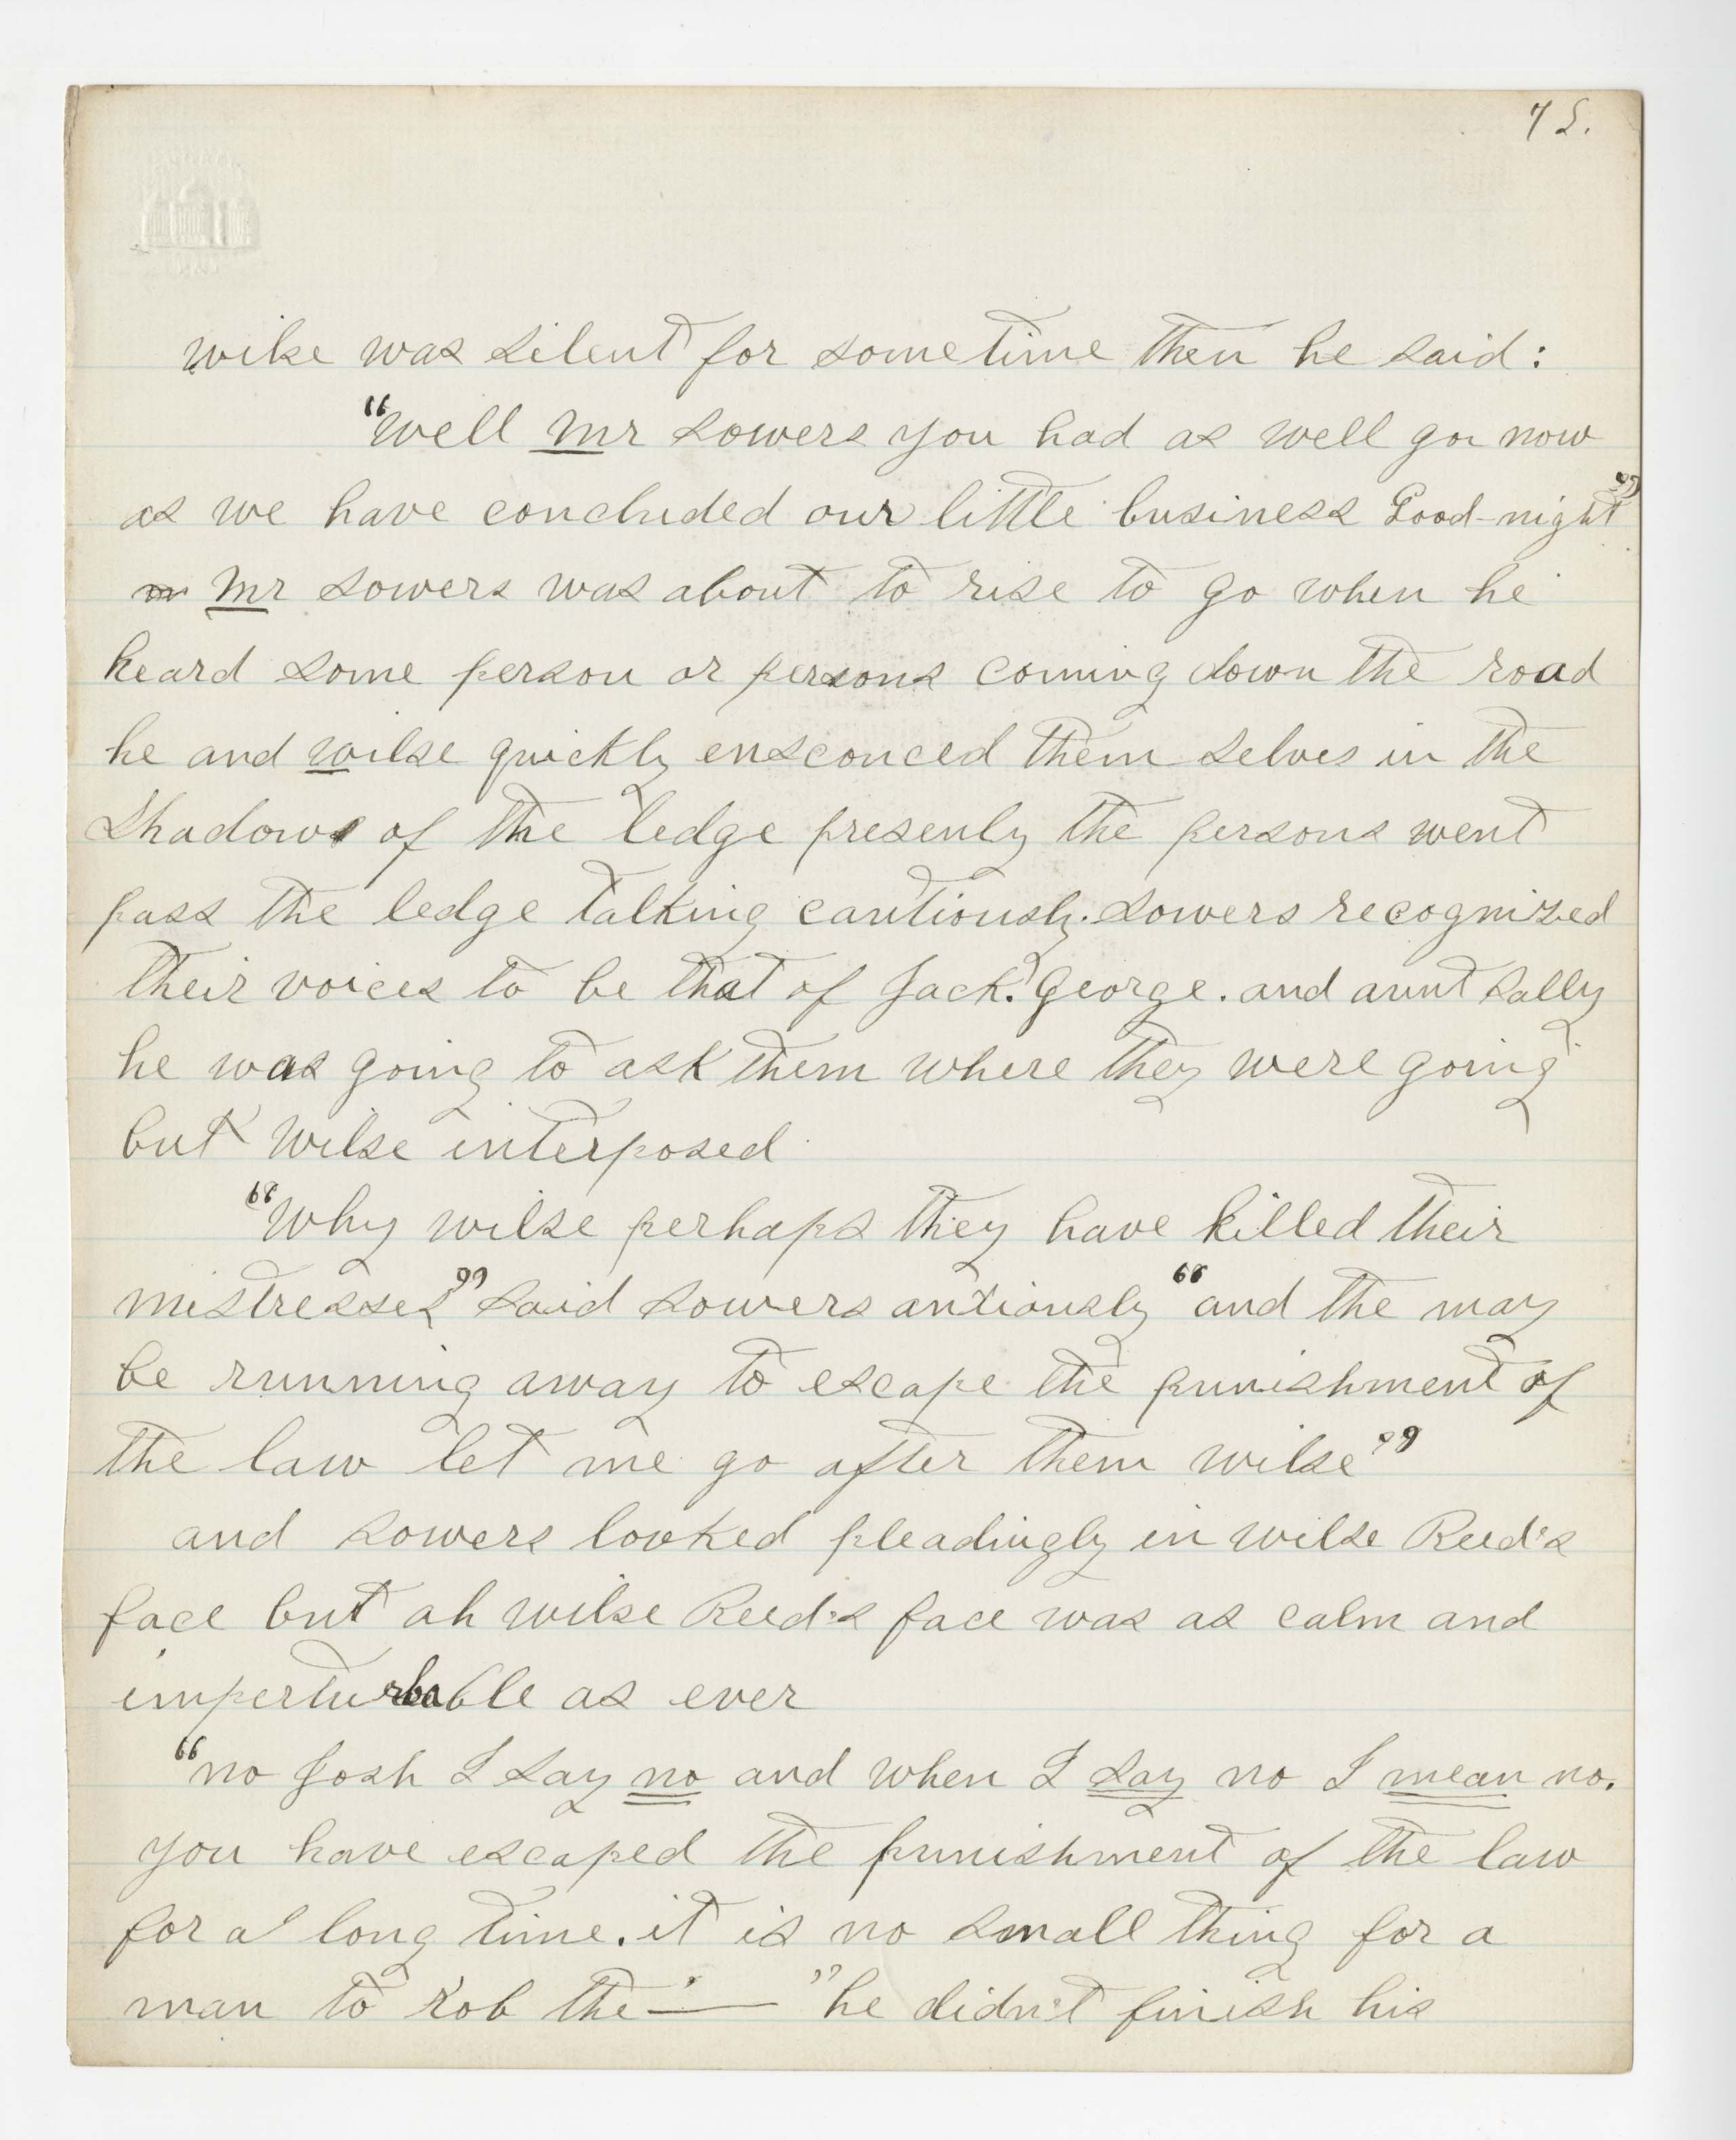 75.
wilse was silent for sometime then he said:
"Well Mr Sowers you had as well go now
as we have concluded our little business Good-night"
Mr Sowers was about to rise to go when he
heard some person or persons coming down the road
he and wilse quickly ensconced them selves in the
Shadows of the ledge presenly the persons went
pass the ledge talking cautiously. Sowers recognized
their voices to be that of Jack. George. and aunt Sally
he was going to ask them where they were going
but Wilse interposed
"Why wilse perhaps they have killed their
mistresses" said Sowers anxiously "and the may
be running away to escape the punishment of
the law let me go after them wilse"
and Sowers looked pleadingly in wilse Reed's
face but ah wilse Reed's face was as calm and
imperturbable as ever
"no Josh I say no and when I say no I mean no.
you have escaped the punishment of the law
for a long time. it is no small thing for a
man to rob the — " he didn't finish his